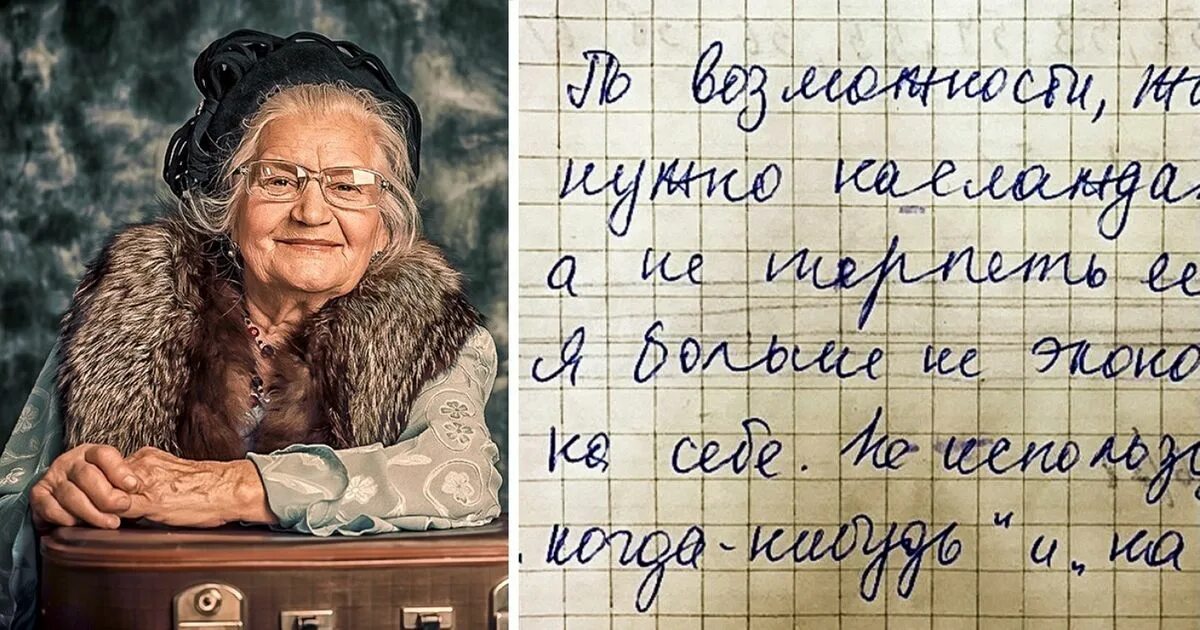 По возможности, ж
нужно наслажда
а не терпеть ее
Я больше не эконо
на себе. Не использу
„когда-нибудь" и „на